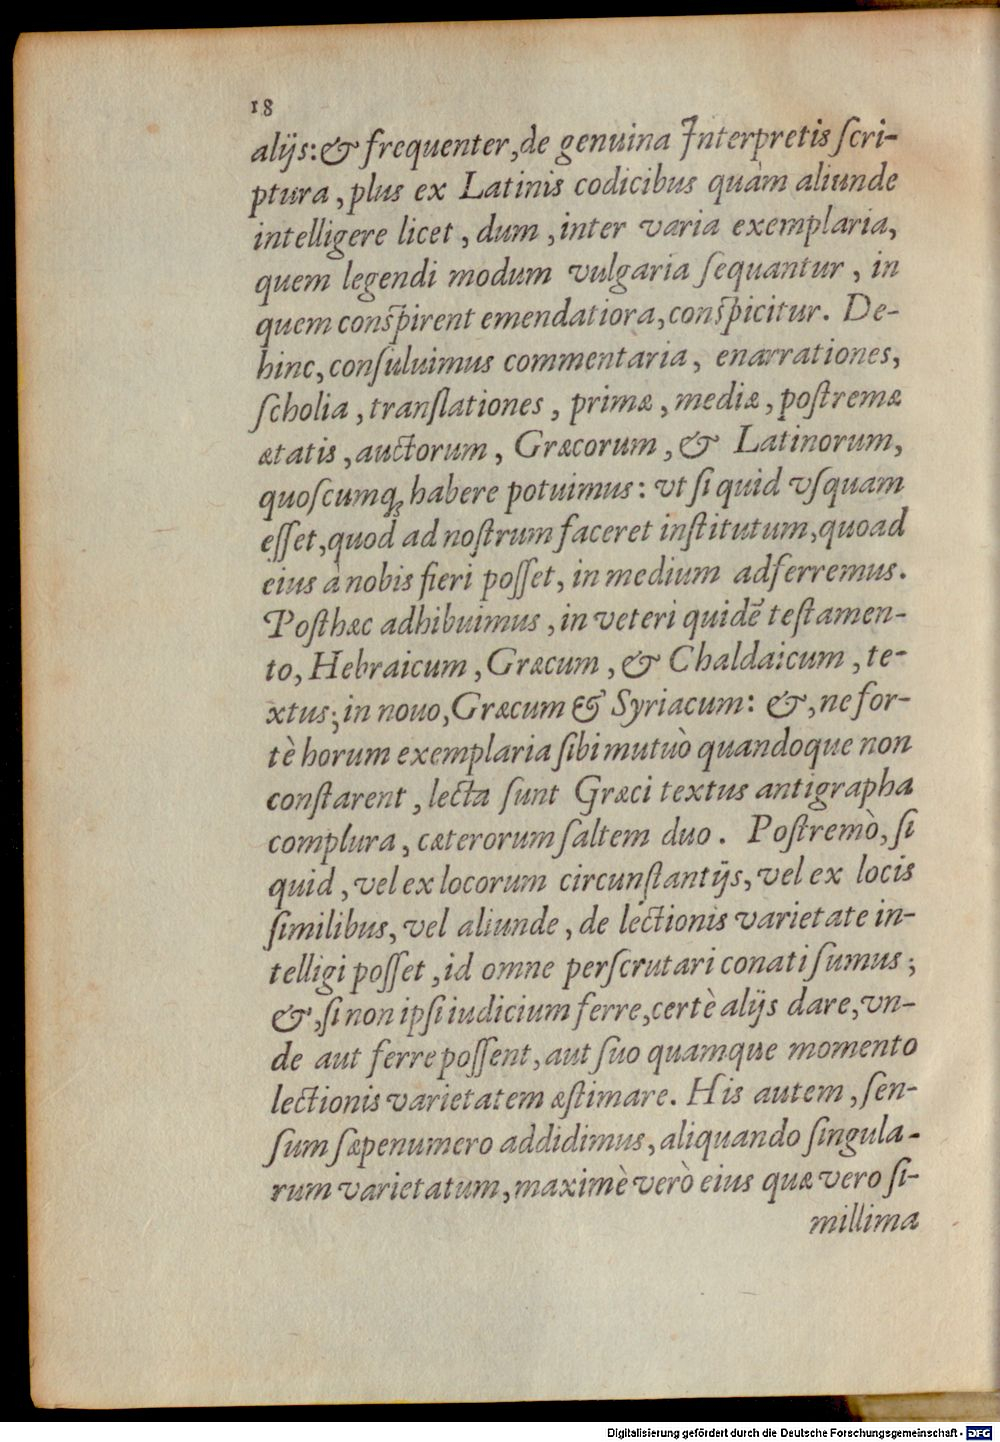 18
alijs: & frequenter, de genuina Interpretis ſcri-
ptura, plus ex Latinis codicibus quàm aliunde
intelligere licet, dum, inter varia exemplaria,
quem legendi modum vulgaria ſequantur, in
quem conſpirent emendatiora, conſpicitur. De-
hinc, conſuluimus commentaria, enarrationes,
ſcholia, tranſlationes, primæ, mediæ, poſtremæ
ætatis, auctorum, Græcorum, & Latinorum,
quoſcumq; habere potuimus: vt ſi quid vſquam
eſſet, quod ad noſtrum faceret inſtitutum, quoad
eius à nobis fieri poſſet, in medium adferremus.
Poſthæc adhibuimus, in veteri quidē teſtamen-
to, Hebraicum, Græcum, & Chaldaicum, te-
xtus; in nouo, Græcum & Syriacum: &, ne for-
tè horum exemplaria ſibi mutuò quandoque non
conſtarent, lecta ſunt Græci textus antigrapha
complura, cæterorum ſaltem duo. Poſtremò, ſi
quid, vel ex locorum circunſtantijs, vel ex locis
ſimilibus, vel aliunde, de lectionis varietate in-
telligi poſſet, id omne perſcrutari conati ſumus;
&, ſi non ipſi iudicium ferre, certè alijs dare, vn-
de aut ferre poſſent, aut ſuo quamque momento
lectionis varietatem æſtimare. His autem, ſen-
ſum ſæpenumero addidimus, aliquando ſingula-
rum varietatum, maximè verò eius quæ vero ſi-
millima
Digitalisierung gefördert durch die Deutsche Forschungsgemeinschaft - DFG